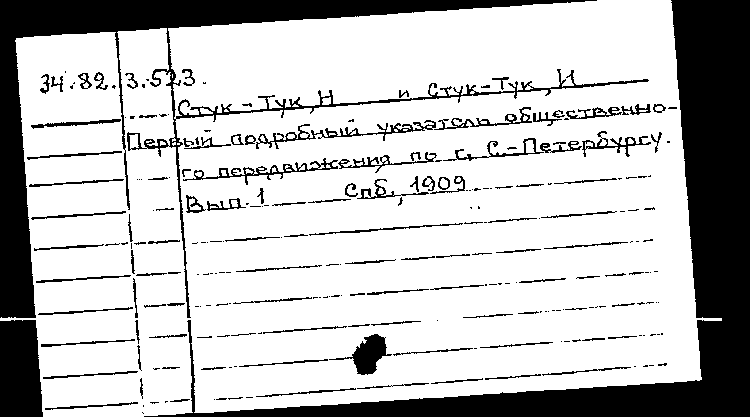 34.82.3.523.
Стук-Тук, Н и Стук-Тук, И
Первый подробный указатель общественно-
го передвижения по г. С.-Петербургу.
Вып. 1 Спб., 1909